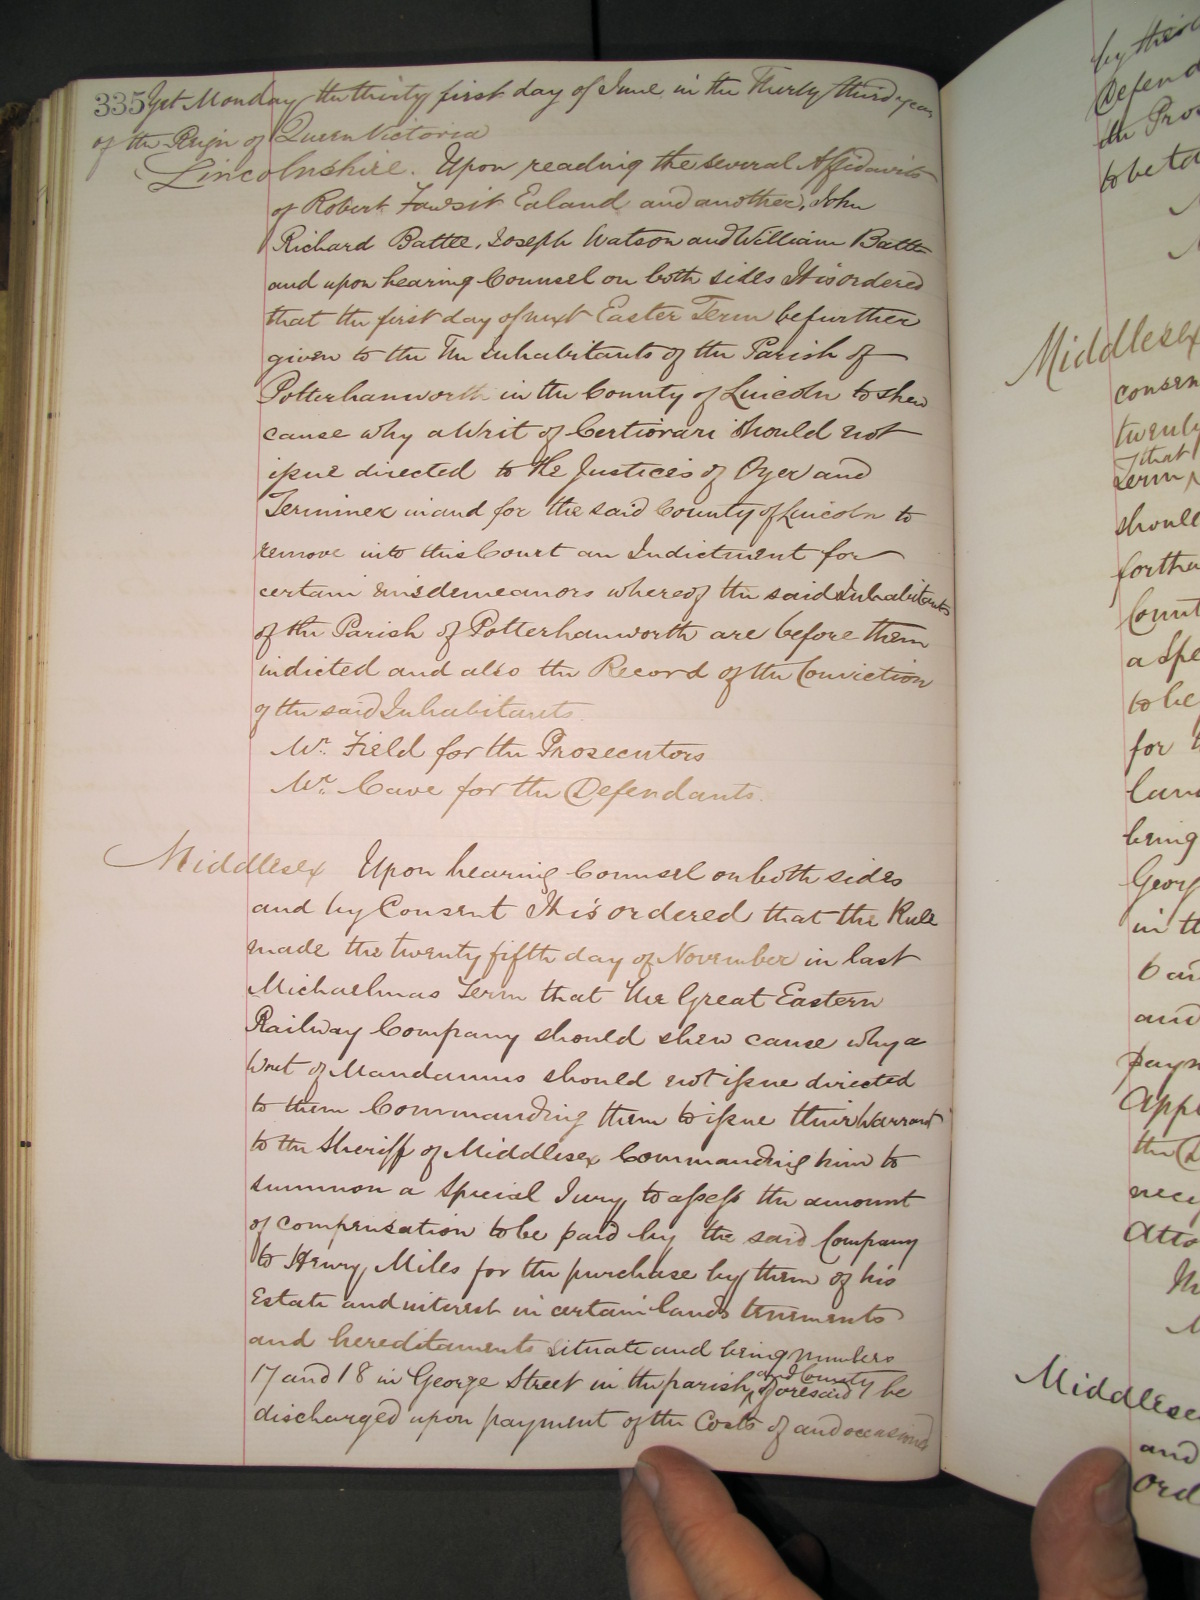 335 Yet Monday the thirty first day of June in the Thirty third year
of the Reign of Queen Victoria
Lincolnshire. Upon reading the several Affidavits
of Robert Fawsit Ealand and another, John
Richard Battle, Joseph Watson and William Battle
and upon hearing Counsel on both sides It is ordered
that the first day of next Easter Term be further
given to the The Inhabitants of the Parish of
Potterhanworth in the County of Lincoln to shew
cause why a Writ of Certiorari should not
issue directed to the Justices of Oyer and
Terminer in and for the said County of Lincoln to
remove into this Court an Indictment for
certain misdemeanors whereof the said Inhabitants
of the Parish of Potterhanworth are before them
indicted and also the Record of the Conviction
of the said Inhabitants.
Mr. Field for the Prosecutors
Mr. Cave for the Defendants.
Middlesex Upon hearing Counsel on both sides
and by Consent It is ordered that the Rule
made the twenty fifth day of November in last
Michaelmas Term that The Great Eastern
Railway Company should shew cause why a
Writ of Mandamus should not issue directed
to them Commanding them to issue their Warrant
to the Sheriff of Middlesex Commanding him to
summon a Special Jury to assess the amount
of compensation to be paid by the said Company
to Henry Miles for the purchase by them of his
Estate and interest in certain lands tenements
and hereditaments situate and being numbers
17 and 18 in George Street in the parish and County aforesaid be
discharged upon payment of the Costs of and occasioned
by their
Defend
the Pros
to be ta
Middlesex
consen
twenty
that
Term
should
forthw
Count
a Spe
to be
for
land
being
Georg
in th
and
paym
Appl
the D
nece
Atto
Middlese
and
ord